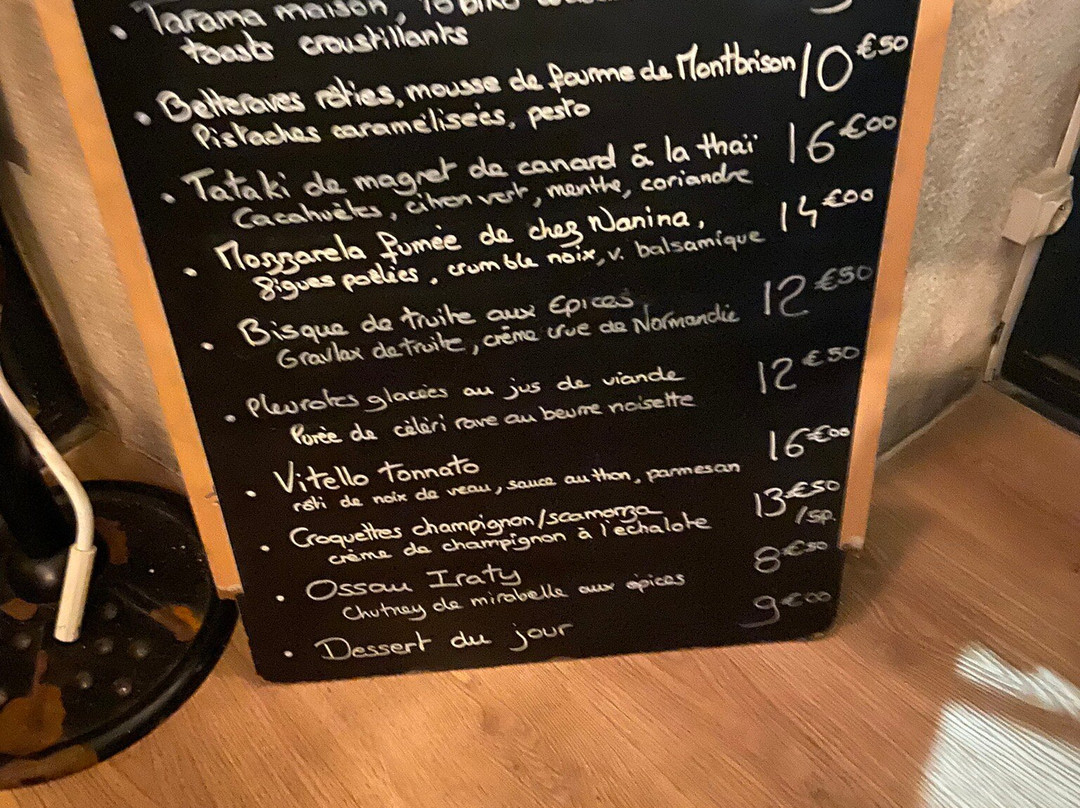 • Tarama maison,
toasts croustillants
• Betteraves rôties, mousse de fourme de Montbrison 10€50
Pistaches caramélisées, pesto
• Tataki de magret de canard à la thaï 16€00
Cacahuètes, citron vert, menthe, coriandre
• Mozzarela fumée de chez Nanina, 14€00
Figues poêlées, crumble noix, v. balsamique
• Bisque de truite aux Epices 12€50
Gravlax de truite, crème crue de Normandie
• Pleurotes glacées au jus de viande 12€50
Purée de céléri rave au beurre noisette
• Vitello Tonnato 16€00
rôti de noix de veau, sauce au thon, parmesan
• Croquettes champignon/scamorza 13€50
crème de champignon à l'echalote /sp.
• Ossau Iraty 8€50
Chutney de mirabelle aux epices
• Dessert du jour 9€00